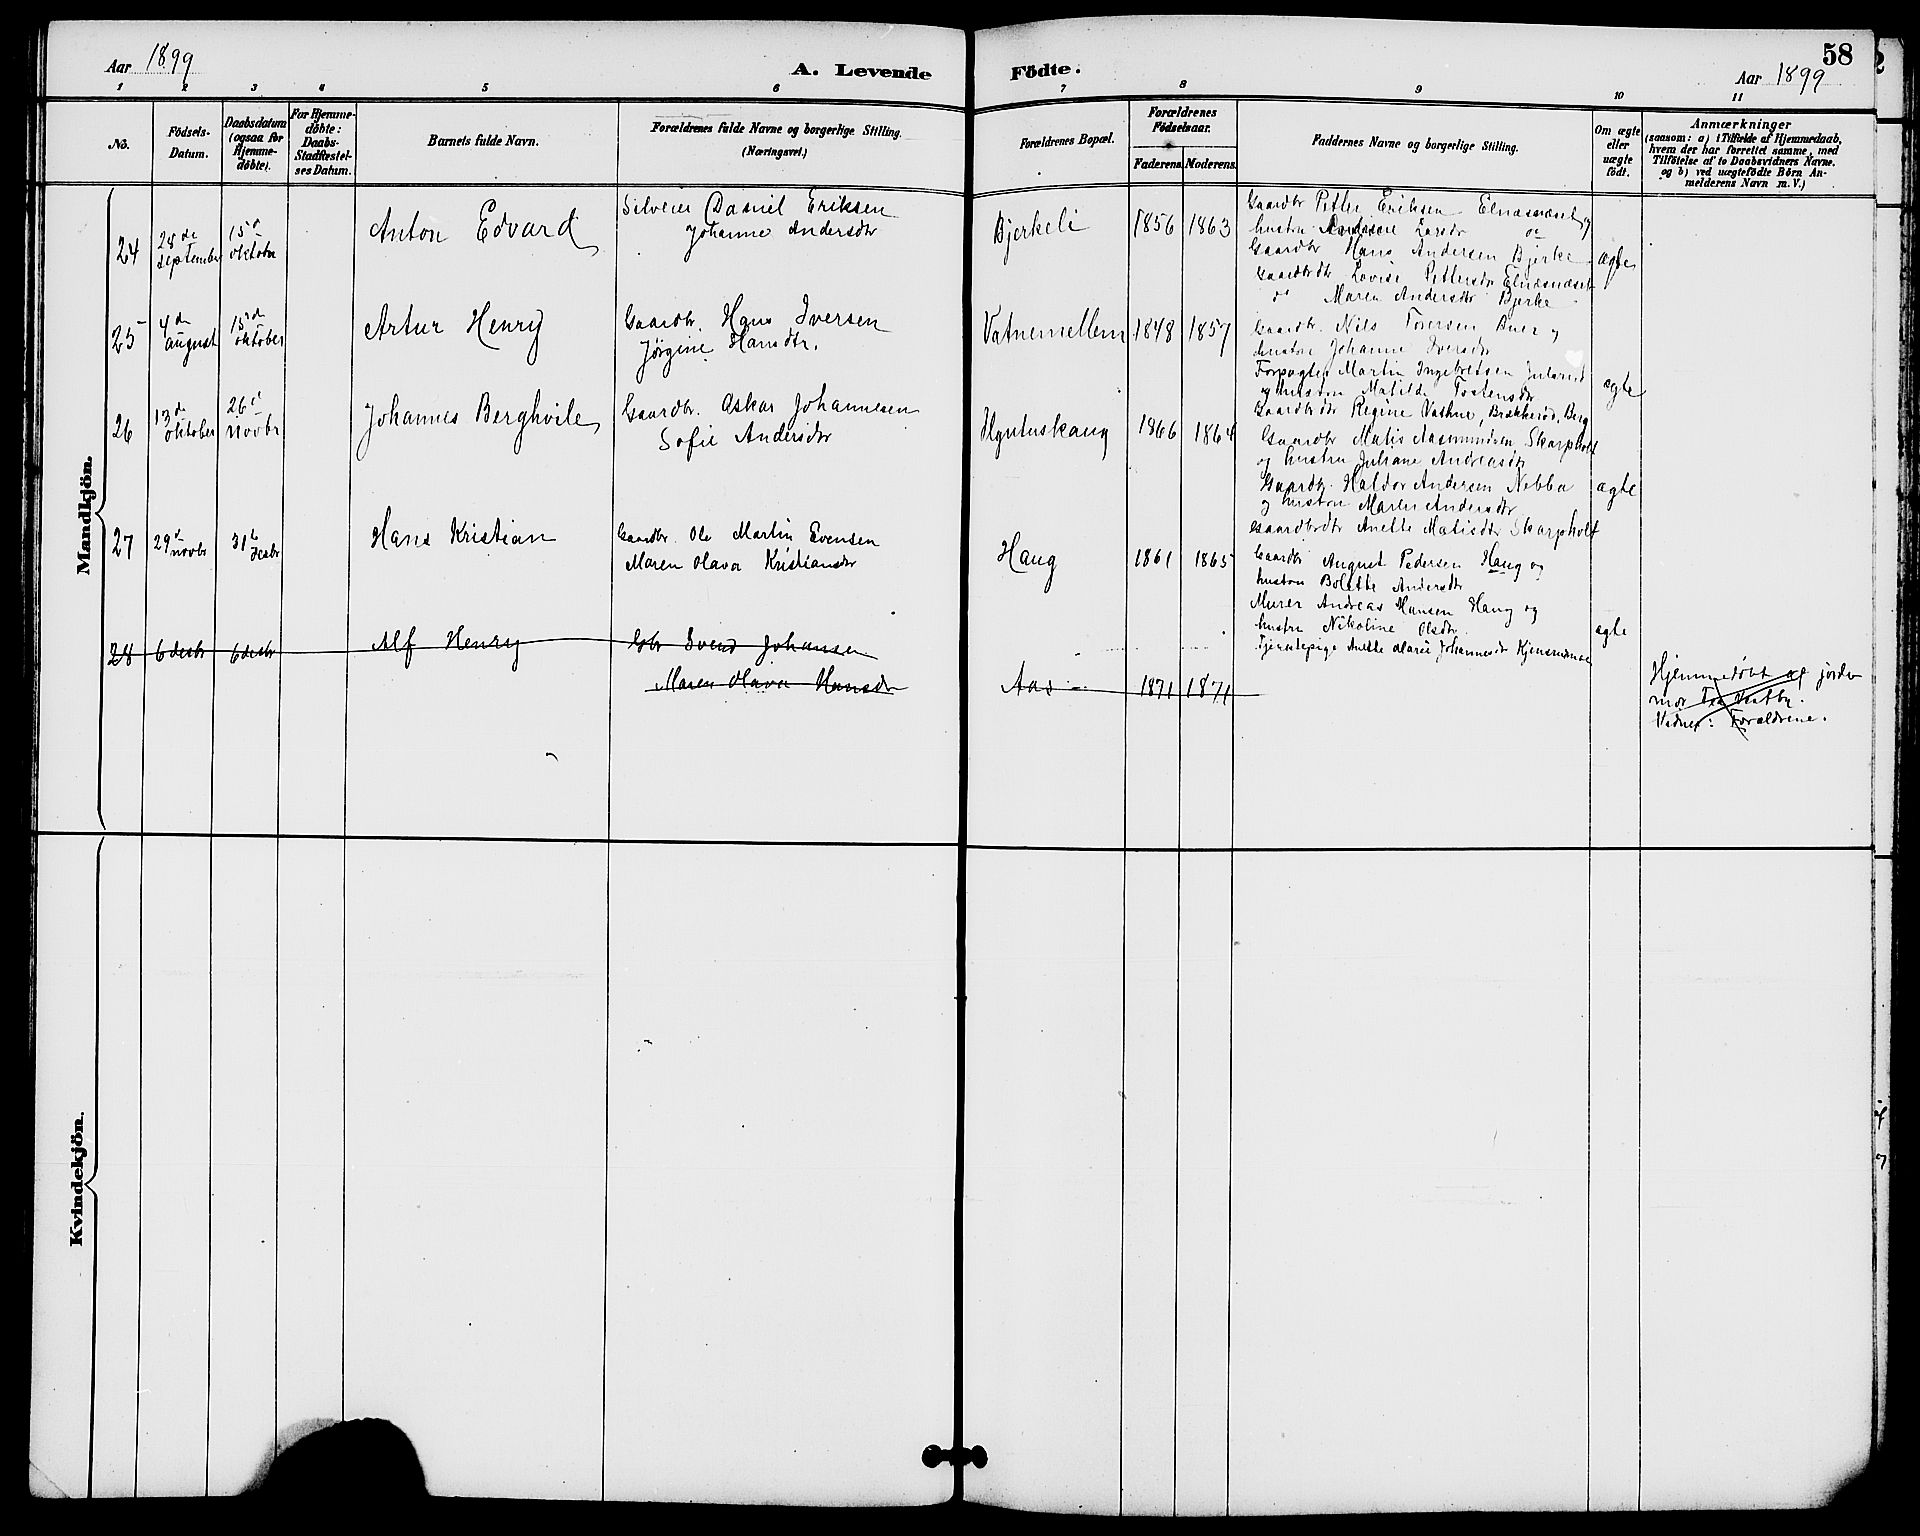 Aar 1899
A. Levende Födte.
Aar 1899
58
1 2 3 4 5 6 7 8 9 10 11
No.
Födsels-Datum.
Daabsdatum (ogsaa for Hjemme-døbte).
For Hjemme-døbte: Daabs-Stadfæstel-ses Datum.
Barnets fulde Navn.
Forældrenes fulde Navne og borgerlige Stilling.
(Næringsvei.)
Forældrenes Bopæl.
Forældrenes Födselsaar.
Faderens. Moderens.
Faddernes Navne og borgerlige Stilling.
Om ægte eller uægte født.
Anmærkninger
(saasom: a) i Tilfælde af Hjemmedaab,
hvem der har forrettet samme, med
Tilföielse af to Daabsvidners Navne.
og b) ved uægtefödte Börn An-
melderens Navn m. V.)
Mandkjön.
24 28de september 15d oktober Anton Edvard
Daniel Eriksen
Johanne Andersdtr
Bjerkeli 1856 1863
Gaardbr Petter Eriksen Elnæsnæset og
hustru Larsdtr
Gaardbr Hans Andersen Bjerke
Gaardbrdtr Lovise Pettersdtr Elnæsnæset
do Maren Andersdtr Bjerke
ægte
25 4de august 15d oktober Artur Henry
Gaardbr. Hans Iversen
Jörgine Hansdtr.
Vatnemellem 1848 1857
Gaardbr. Nils og
hustru Johanne Iversdtr
Forpagter Martin Ingebretsen
og hustru Matilde
Gaardbrdtr Regine
ægte
26 13de oktober 26d novbr Johannes Berghvile
Gaardbr. Oskar Johannesen
Sofie Andersdtr
1866 1864
Gaardbr Matis Aasmundsen Skarpholt
og hustru Juliane Andreasdtr
Gaardbr. Haldor Andersen Nebba
og hustru Maren Andersdtr
Gaardbrdtr Anette Matisdtr Skarpholt
ægte
27 29d novbr 31te Hans Kristian
Gaardbr. Ole Martin Evensen
Maren Olava Kristiansdtr
Haug 1861 1865
Gaardbr August Pedersen Haug og
hustru Bolette Andersdtr
Murer Andreas Hansen Haug og
hustru Nikoline Olsdtr.
Tjenestepige Anette Marie Johannesdtr
ægte
28 6 desbr 6 desbr Alf Henry
Gbr Svend Johansen
Maren Olava Hansdtr
Aas 1871 1871
Hjemmedöbt af jorde
mor
Vidner: Forældrene.
Kvindekjön.